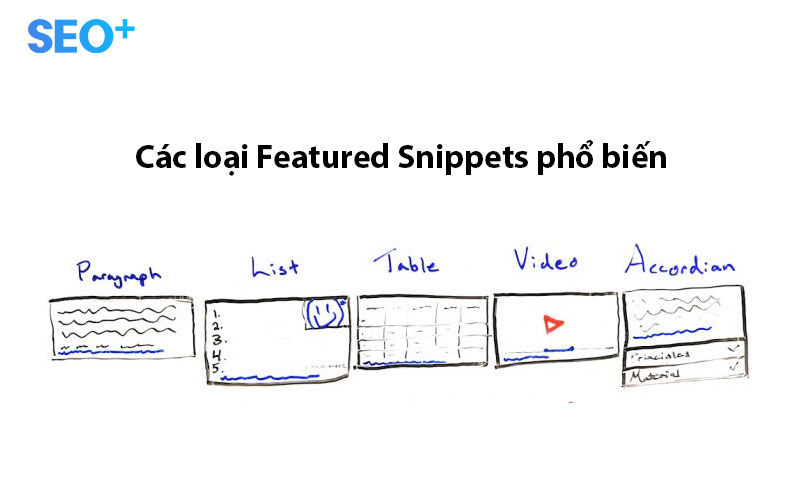 SEO+
Các loại Featured Snippets phổ biến
Paragraph List Table Video Accordian
1.
2.
3.
4.
5.
Principles
Material